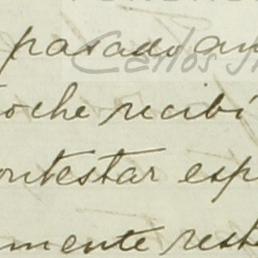 pasado an
oche recibí
ontestar esp
mente rest